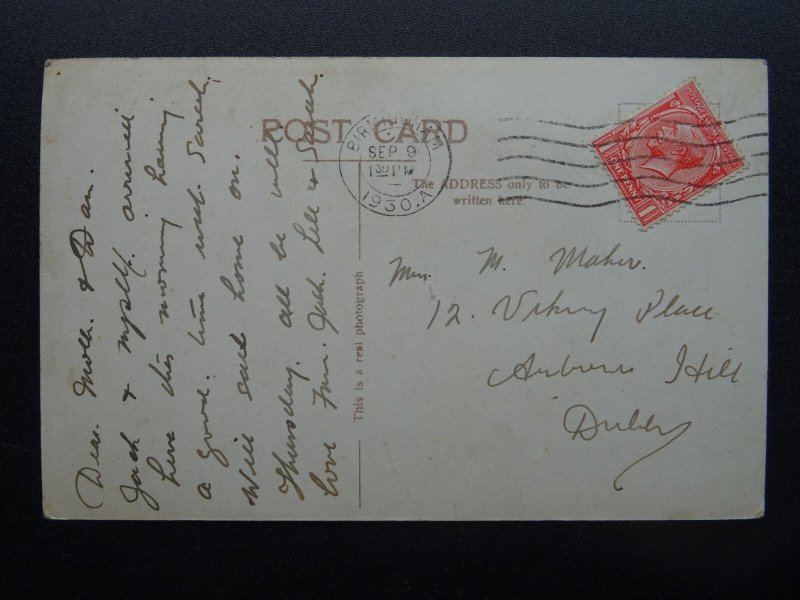 POST CARD
BIRMINGHAM
SEP 9
1930.A
ONE PENNY
The ADDRESS only to be
written here
This is a real photograph
Dear Moll. & Dan.
Jack & myself. arrived
here this morning having
a good. time with Sarah.
Will sail home on.
Thursday. all be well
love from. Jack. & Sarah.
Mrs. M. Maher.
12. Viking Place
Arbour Hill
Dublin